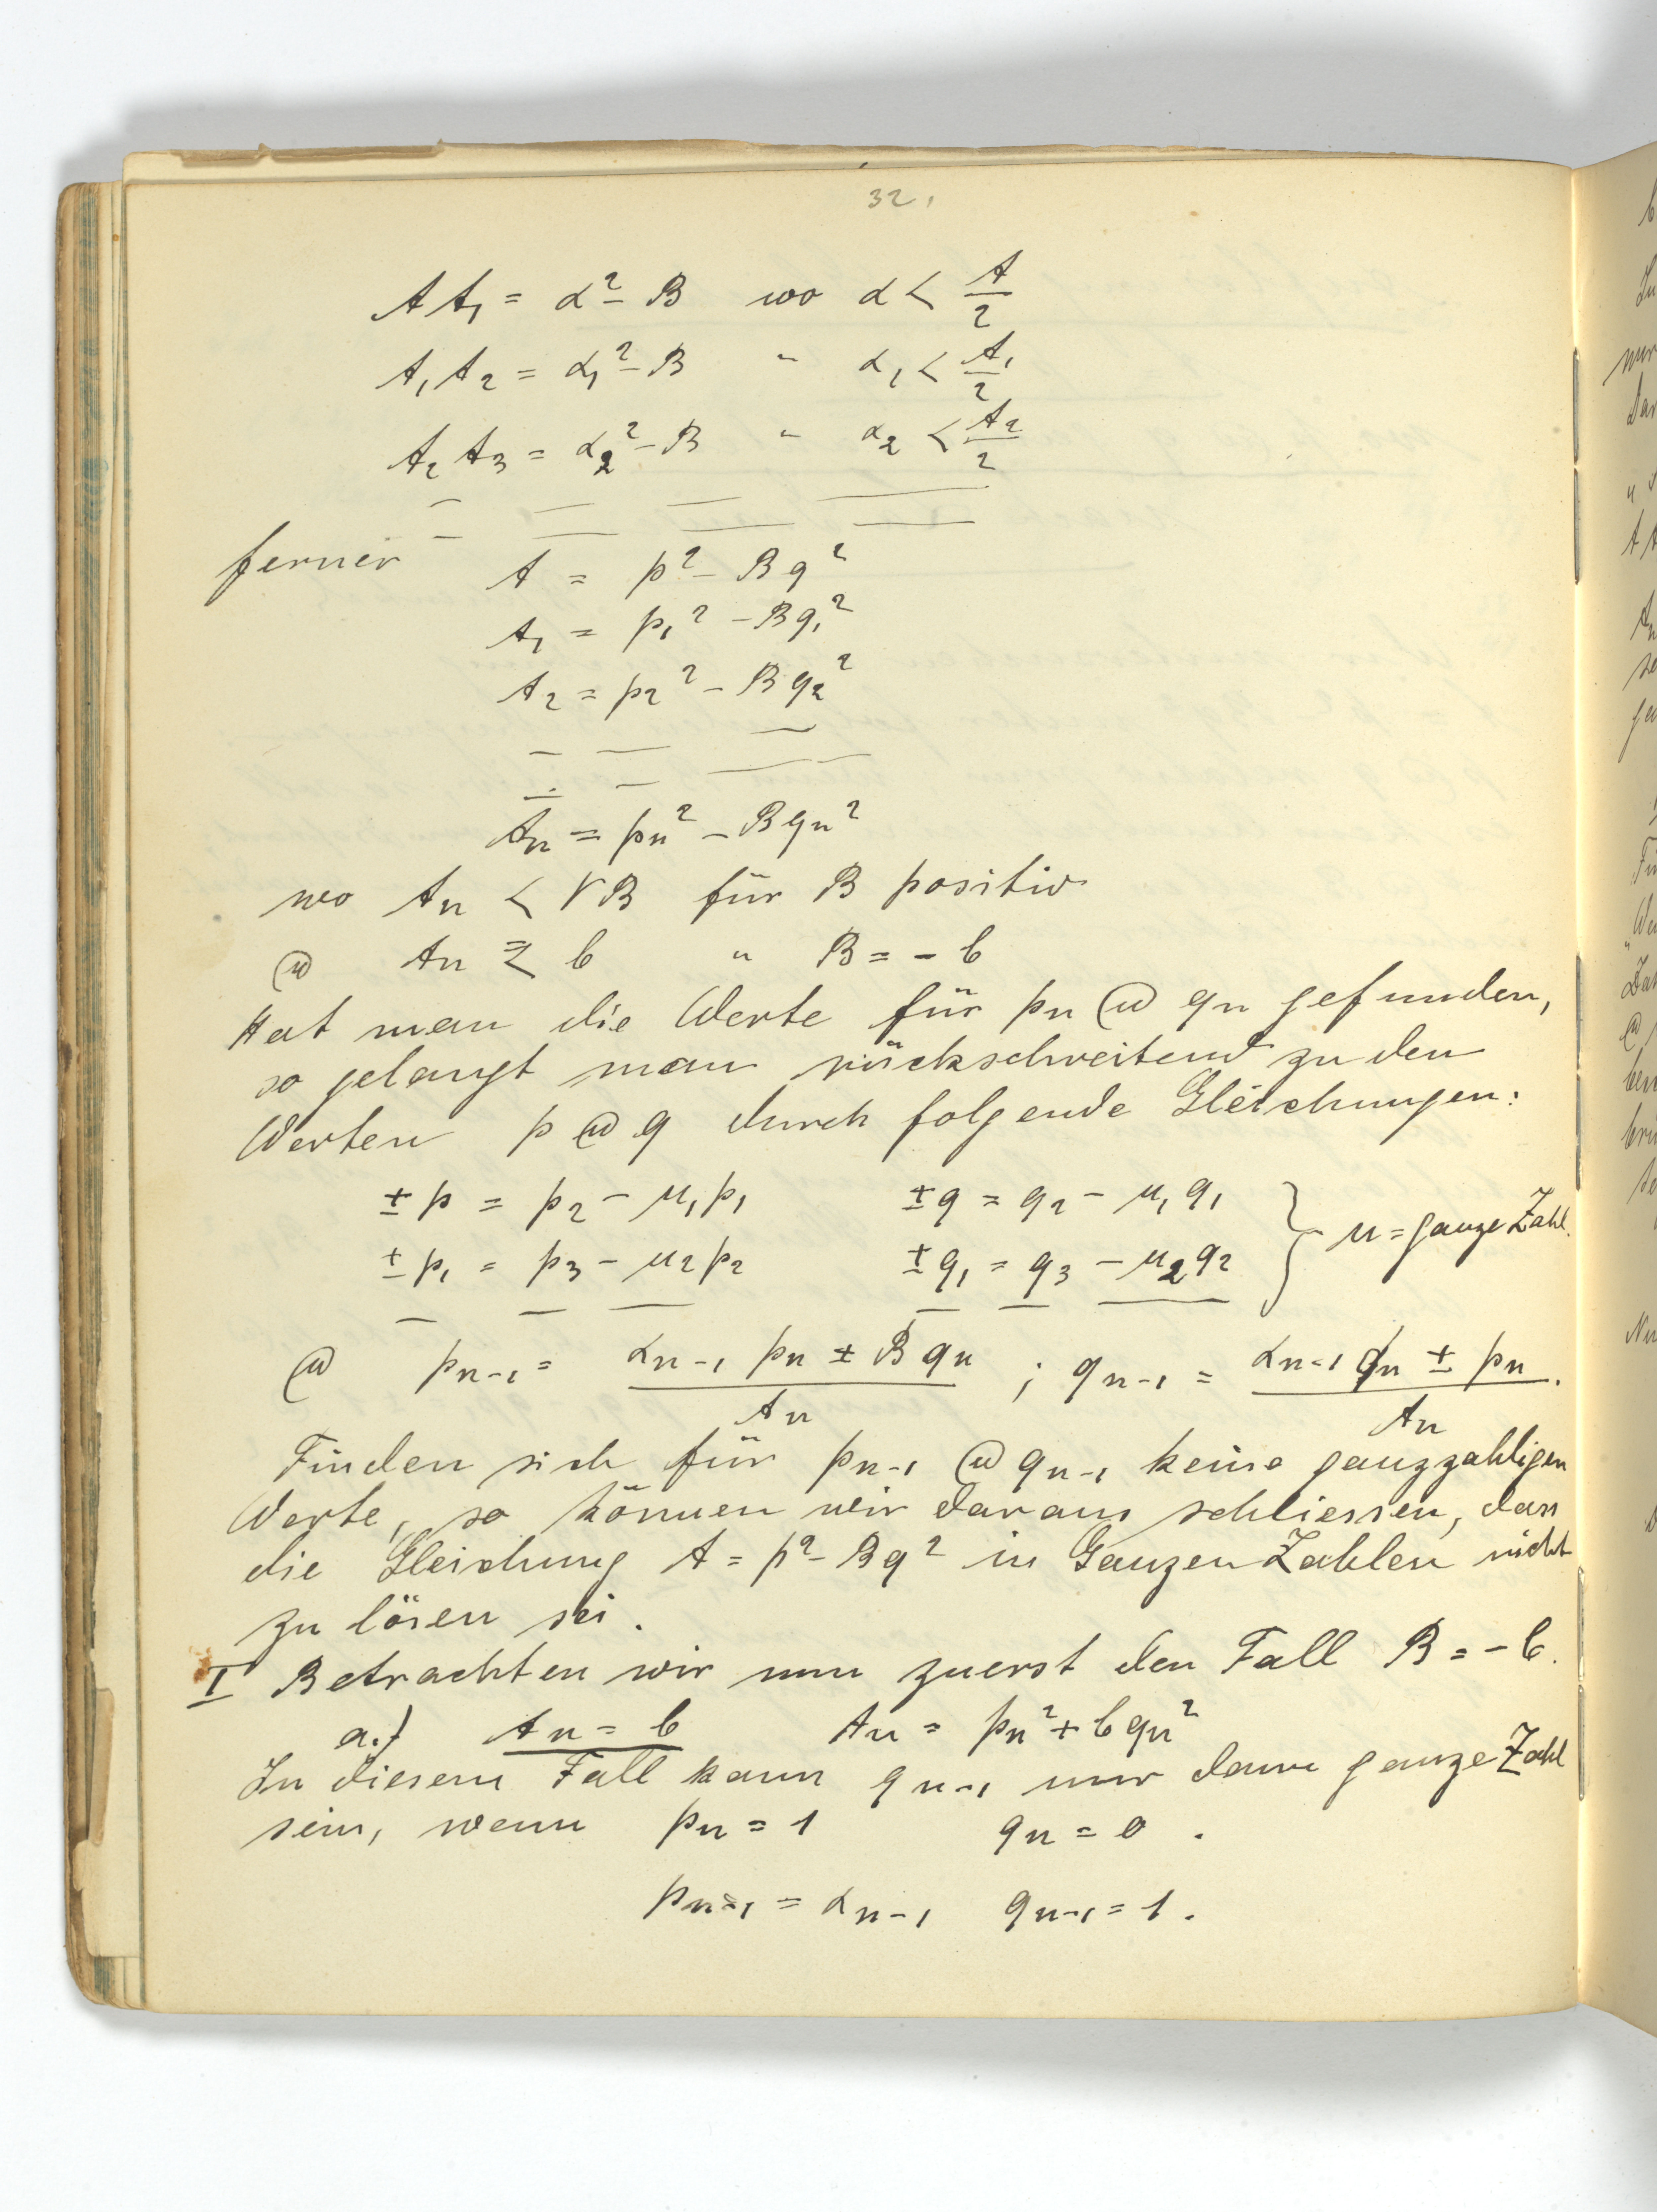 32.
A A₁ = α² - B wo α < A/2
A₁ A₂ = α₁² - B " α₁ < A₁/2
A₂ A₃ = α₂² - B " α₂ < A₂/2
ferner A = p² - Bq²
A₁ = p₁² - Bq₁²
A₂ = p₂² - Bq₂²
Aₙ = pₙ² - Bqₙ²
wo Aₙ < √B für B positiv
ⓤ Aₙ ≦ b " B = - b
Hat man die Werte für pₙ ⓤ qₙ gefunden,
so gelangt man rückschreitend zu den
Werten p ⓤ q durch folgende Gleichungen:
± p = p₂ - μ₁p₁ ± q = q₂ - μ₁q₁
± p₁ = p₃ - μ₂p₂ ± q₁ = q₃ - μ₂q₂ } μ = ganze Zahl.
ⓤ pₙ₋₁ = (αₙ₋₁ pₙ ± Bqₙ)/Aₙ ; qₙ₋₁ = (αₙ₋₁ qₙ ± pₙ)/Aₙ .
Finden sich für pₙ₋₁ ⓤ qₙ₋₁ keine ganzzahligen
Werte, so können wir daraus schliessen, dass
die Gleichung A = p² - Bq² in Ganzen Zahlen nicht
zu lösen sei.
I Betrachten wir nun zuerst den Fall B = - b.
a.) Aₙ = b Aₙ = pₙ² + bqₙ²
In diesem Fall kann qₙ₋₁ nur dann ganze Zahl
sein, wenn pₙ = 1 qₙ = 0 .
pₙ₋₁ = αₙ₋₁ qₙ₋₁ = 1 .